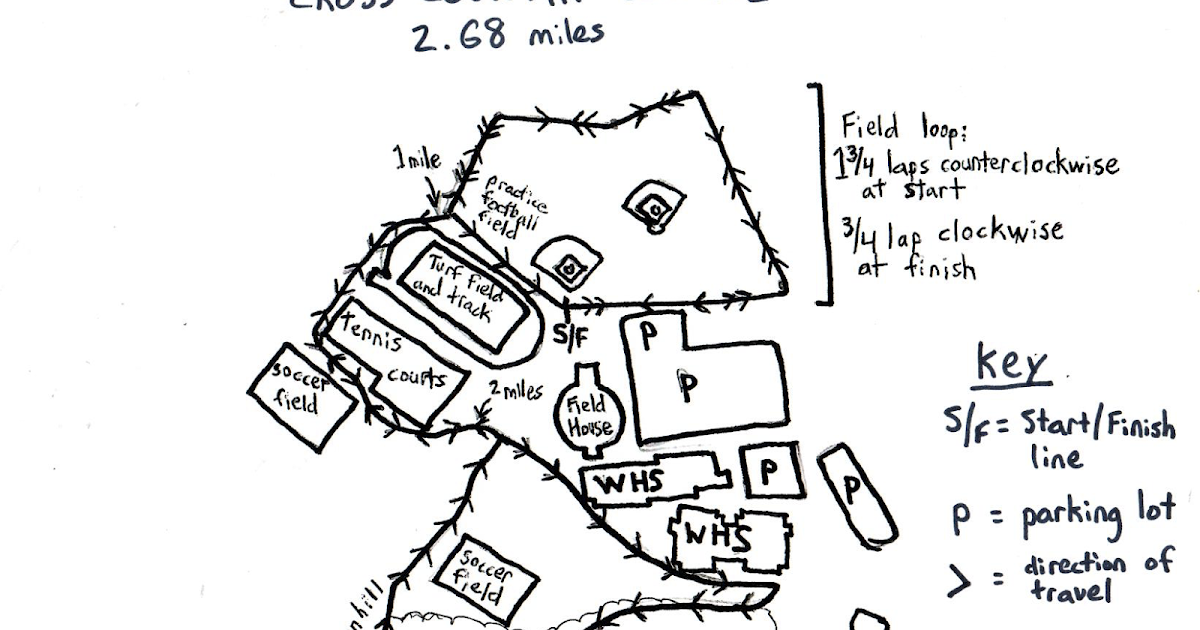 CROSS
2.68 miles
Field loop:
1 3/4 laps counterclockwise
at start
3/4 lap clockwise
at finish
1 mile
practice
football
field
Turf field
and track
S/F
P
P
tennis
courts
soccer
field
2 miles
Field
House
WHS
P
P
WHS
soccer
field
key
S/F = Start/Finish
line
P = parking lot
> = direction of
travel